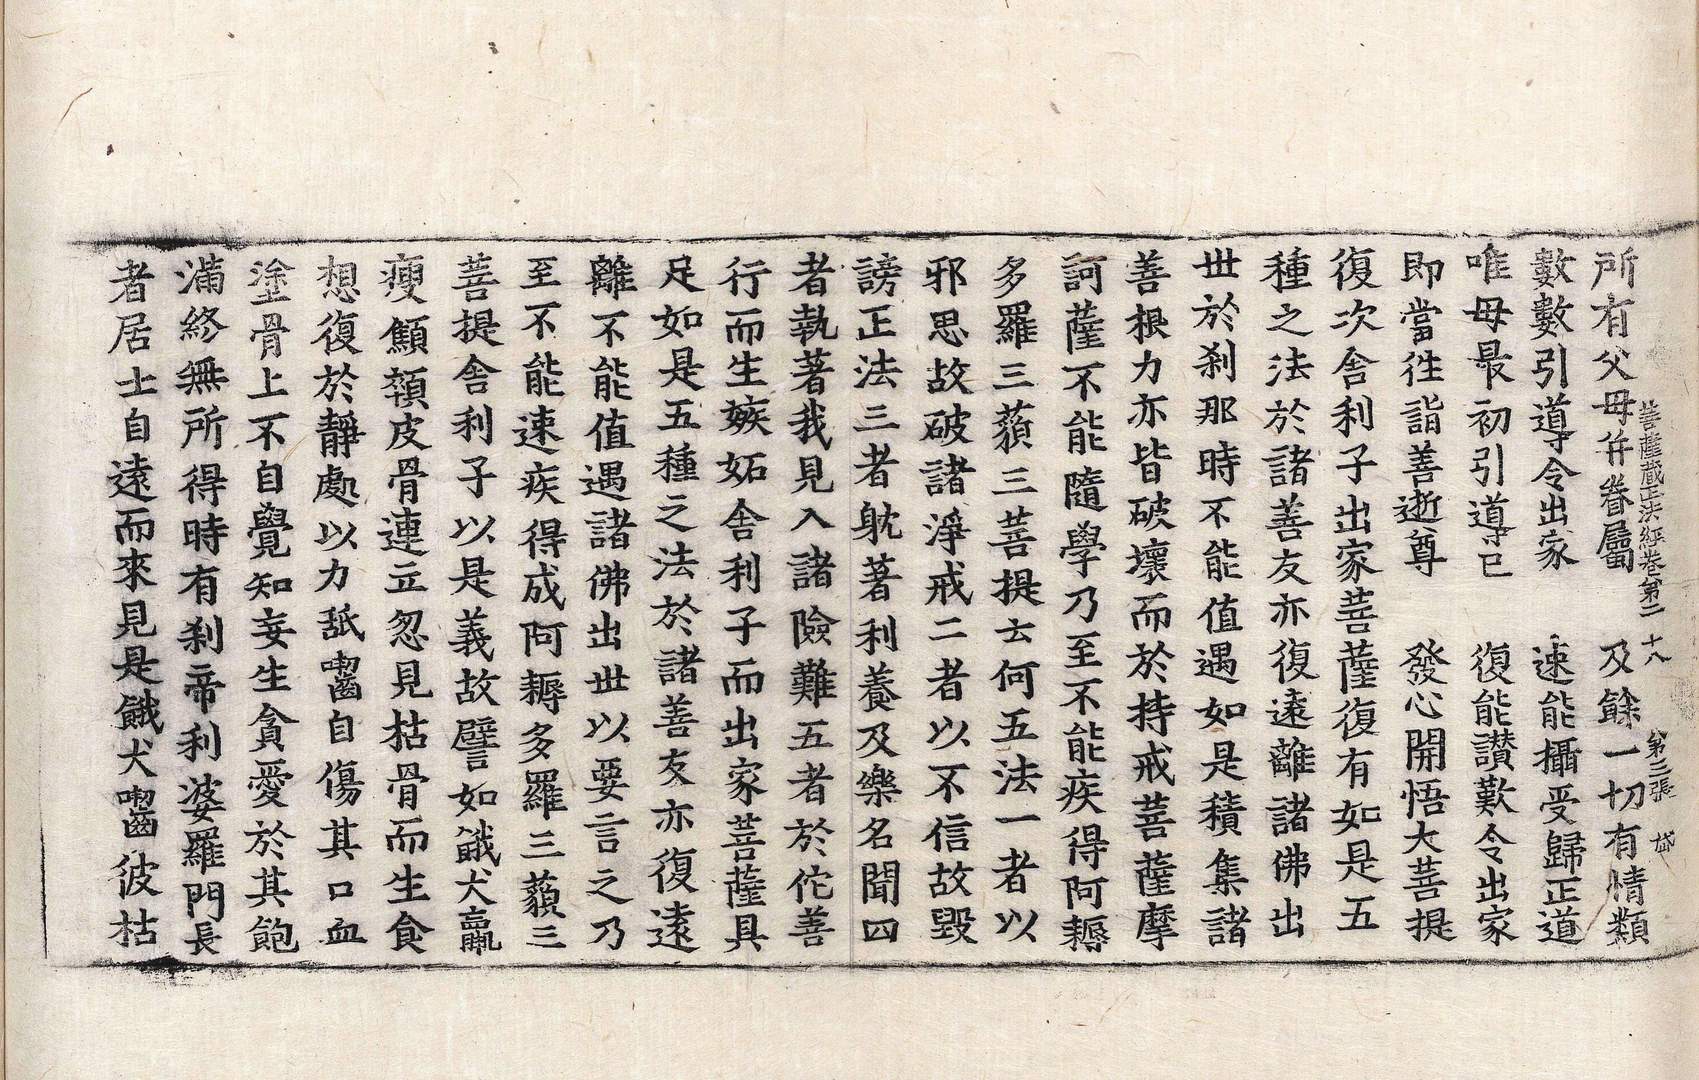 菩薩藏正法經卷第二十八　第三張　岱
所有父母并眷屬　及餘一切有情類
數數引導令出家　速能攝受歸正道
唯母最初引導已　復能讃歎令出家
即當往詣善逝尊　發心開悟大菩提
復次舍利子出家菩薩復有如是五
種之法於諸善友亦復遠離諸佛出
世於刹那時不能值遇如是積集諸
善根力亦皆破壞而於持戒菩薩摩
訶薩不能隨學乃至不能疾得阿耨
多羅三藐三菩提云何五法一者以
邪思故破諸淨戒二者以不信故毀
謗正法三者躭著利養及樂名聞四
者執著我見入諸險難五者於佗善
行而生嫉妬舍利子而出家菩薩具
足如是五種之法於諸善友亦復遠
離不能值遇諸佛出世以要言之乃
至不能速疾得成阿耨多羅三藐三
菩提舍利子以是義故譬如餓犬羸
瘦顦顇皮骨連立忽見枯骨而生食
想復於靜處以力舐囓自傷其口血
塗骨上不自覺知妄生貪愛於其飽
滿終無所得時有刹帝利婆羅門長
者居士自遠而來見是餓犬囓彼枯